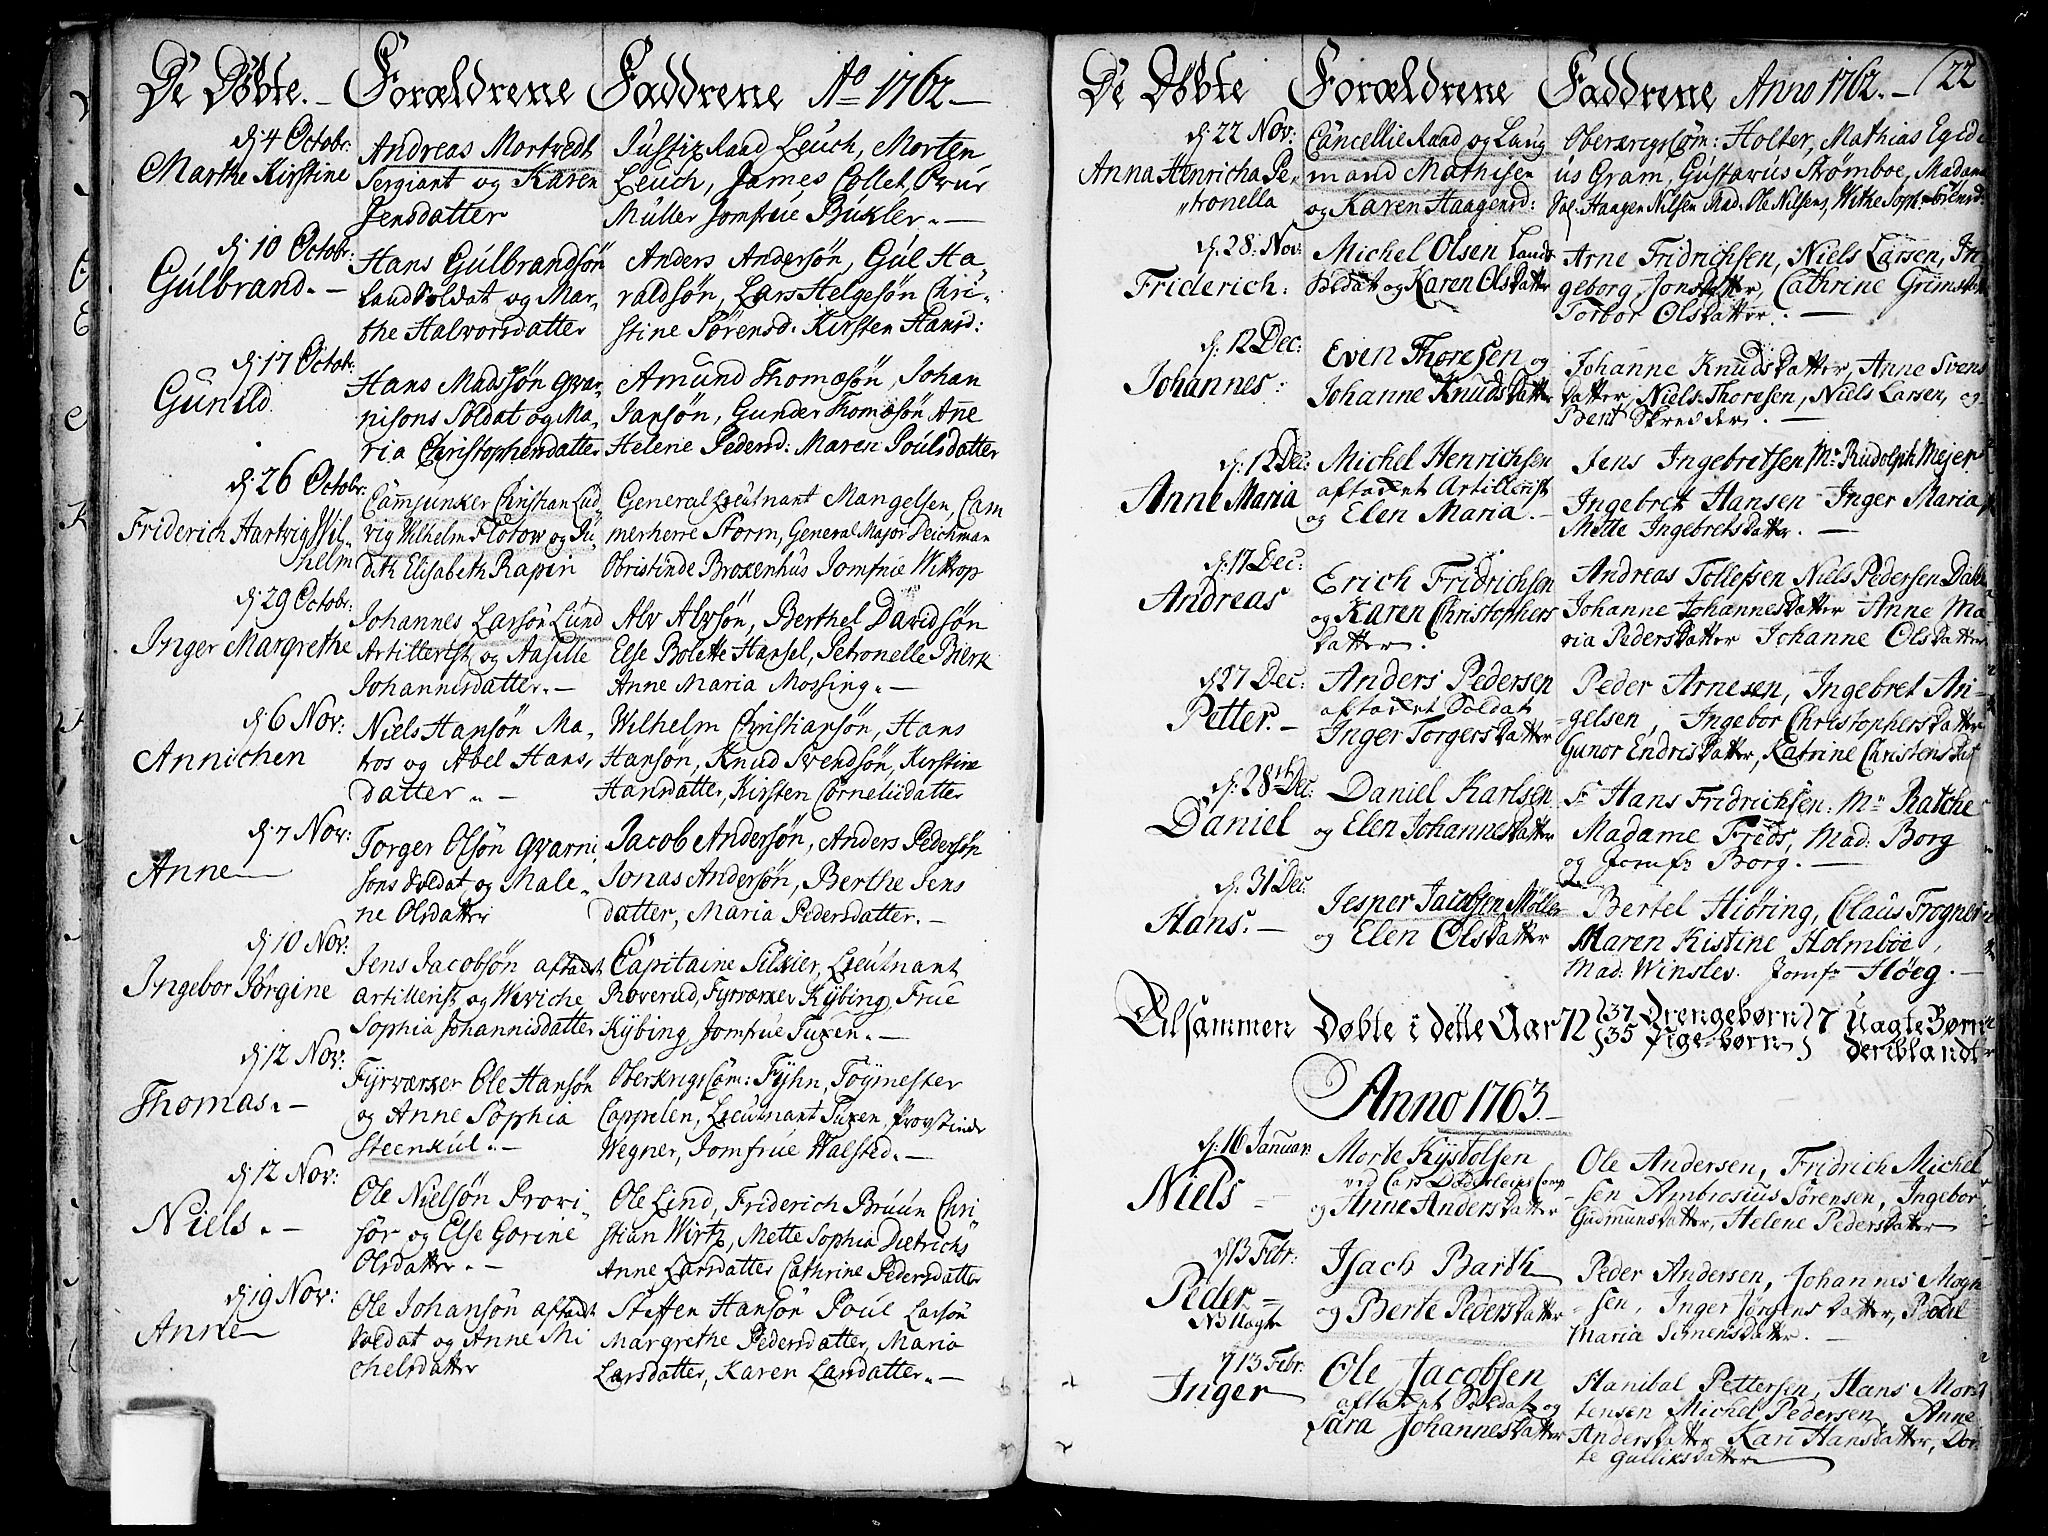 De Døbte. – Forældrene Faddrene Ao 1762 –
dj 4 Octobr:
Marthe Kirstine
Andreas Mortvedt
Sergiant og Karen
Jensdatter
Justiz Raad Leuch, Morten
Leuch, James Collet, Prur
Müller Jomfrue Bükler. –
dj 10 Octobr:
Gülbrand. –
Hans Gülbrandsön
Land Soldat og Mar-
the Halvorsdatter
Anders Andersön, Gül Ha
raldsön, Lars Helgesön Chri-
stine Sörensd. Kirsten Hansd:
dj 17 Octob:
Günild
Hans Madssön Gvar-
nisons Soldat og Ma-
ria Christophersdatter
Amund Thomæsön, Johan
Jansön, Gunder Thomæsön Anne
Helene Pedersd: Maren Poulsdatter
dj 26 Octobr:
Friderich Hartvig Wil-
helm
Cammjunker Christian Lud
vig Wilhelm Flotow og Ju-
dith Elisabeth Rapin
General Leutnant Mangelsen, Cam
merherre Storm, General Major Deichman
Obristinde Brokenhus Jomfrue Wittrop
dj 29 Octobr:
Inger Margrethe
Johannes Larsön Lund
Artillerist og Aasille
Johannisdatter. –
Alv Alvsön, Berthel Davidsön
Else Bolette Hansel, Petronelle Bierk
Anne Maria Mossing. –
dj 6 Nov:
Annichen
Niels Hansön Ma-
tros og Abel Hans,
datter. –
Wilhelm Christiansön, Hans
Hansön, Knud Svendsön, Kirstine
Hansdatter, Kirsten Corneliidatter
dj 7 Nov:
Anne
Torger Olsön Gvarni
sons Soldat og Male-
ne Olsdatter
Jacob Andersön, Anders Pedersön
Jonas Andersön, Berthe Jens
datter, Maria Pedersdatter. –
dj 10 Nov:
Ingebor Jörgine
Jens Jacobsön aftadt
Artillerist og Wiviche
Sophia Johannisdatter
Capitaine Silkier, Leutnant
Roverud, Fyrværker Kÿbing, Frue
Kÿbing, Jomfrue Tuxen. –
dj 12 Nov:
Thomas. –
Fyrværker Ole Hansön
og Anne Sophia
Steenkul. –
Oberkrigs Com: Fÿhn, Toÿmester
Cappelen, Leutnant Tuxen, Provstinde
Wegner, Jomfrue Walsted. –
dj 12 Nov:
Niels. –
Ole Nielsön Provi-
sør og Else Gorine
Olsdatter. –
Ole Lind, Friderich Bruun Chri
stian Wirtz, Mette Sophia Dietrichs
Anne Larsdatter Cathrine Pedersdatter
dj 19 Nov:
Anne
Ole Johansön aftadt
Soldat og Anne Mi
chelsdatter
Steffen Hansön Poul Larsön
Margrethe Pedersdatter, Maria
Larsdatter, Karen Larsdatter. –
De Døbte Forældrene Faddrene Anno 1762. – 22
dj. 22 Nov:
Anna Henricha Pe-
tronella
Cancellie Raad og Laug
mand Mathisen
og Karen Haagensd:
Oberkrigs Com: Holter, Mathias Egidi
us Gram, Gustavus Strømboe, Madam
Sal. Haagen Nilsen Mad. Ole Nilsens, Withe Soph. Brensd.
dj. 28. Nov:
Friderich:
Michel Olsen Lands
Soldat og Karen Olsdatter
Arne Fridrichsen, Niels Larsen, In
geborg Jonsdatter, Cathrine Grimsdatter
Torbor Olsdatter. –
dj. 12 Dec:
Johannes:
Even Thoresen og
Johanne Knudsdatter
Johanne Knudsdatter, Anne Svens
datter, Niels Thoresen, Niels Larsen, og
Bent Skredder. –
dj. 12 Dec:
Anne Maria
Michel Henrichsen
aftaket Artillerist
og Elen Maria. –
Jens Ingebretsen Mr Rudolph Mejer
Ingebret Hansen Inger Maria
Mette Ingebretsdatter. –
dj. 17 Dec:
Andreas
Erich Fridrichsen
og Karen Christophers
datter.
Andreas Tollefsen Niels Pedersen Dahl
Johanne Johannesdatter Anne Ma-
ria Pedersdatter Johanne Olsdatter
dj 27 Dec:
Petter. –
Anders Pedersen
aftaket Soldat
Inger Torgersdatter
Peder Arnesen, Ingebret An-
gelsen, Ingebor Christophersdatter
Gunor Endrisdatter, Katrine Christensdat
dj. 28 Dec:
Daniel
Daniel Karlsen
og Elen Johannesdatter
Sr Hans Fridrichsen. Mr Ratche
Madame Freds, Mad. Borg
og Jomfr Borg. –
dj. 31 Dec:
Hans. –
Jesper Jacobsen Møller
og Elen Olsdatter
Bertel Hiøring, Claus Frogner
Maren Kistine Holmboe,
Mad: Winsles. Jomfr Høeg. –
Tilsammen Døbte i dette Aar 72 37 Drengebørn 7 Uægte Børn
35 Pigebørn deriblandt
Anno 1763 –
dj. 16 Januar:
Niels
Morte Kystolsen
ved Capt Døderleins Comp
og Anne Andersdatter
Ole Andersen, Fridrich Michel
sen Ambrosius Sørensen, Ingebor
Gudmunsdatter, Helene Pedersdatter
dj 13 Febr:
Peder –
NB Uægte
Isach Barth
og Berte Pedersdatter
Peder Andersen, Johannis Mogn
sen, Inger Jørgensdatter, Bodil
Maria Simensdatter. –
dj 13 Febr.
Inger
Ole Jacobsen
aftaket Soldat og
Sara Johannesdatter
Hanibal Pettersen, Hans Mor
tensen Michel Pedersen, Anne
Andersdatter Kari Hansdatter, Dor
te Gulliksdatter